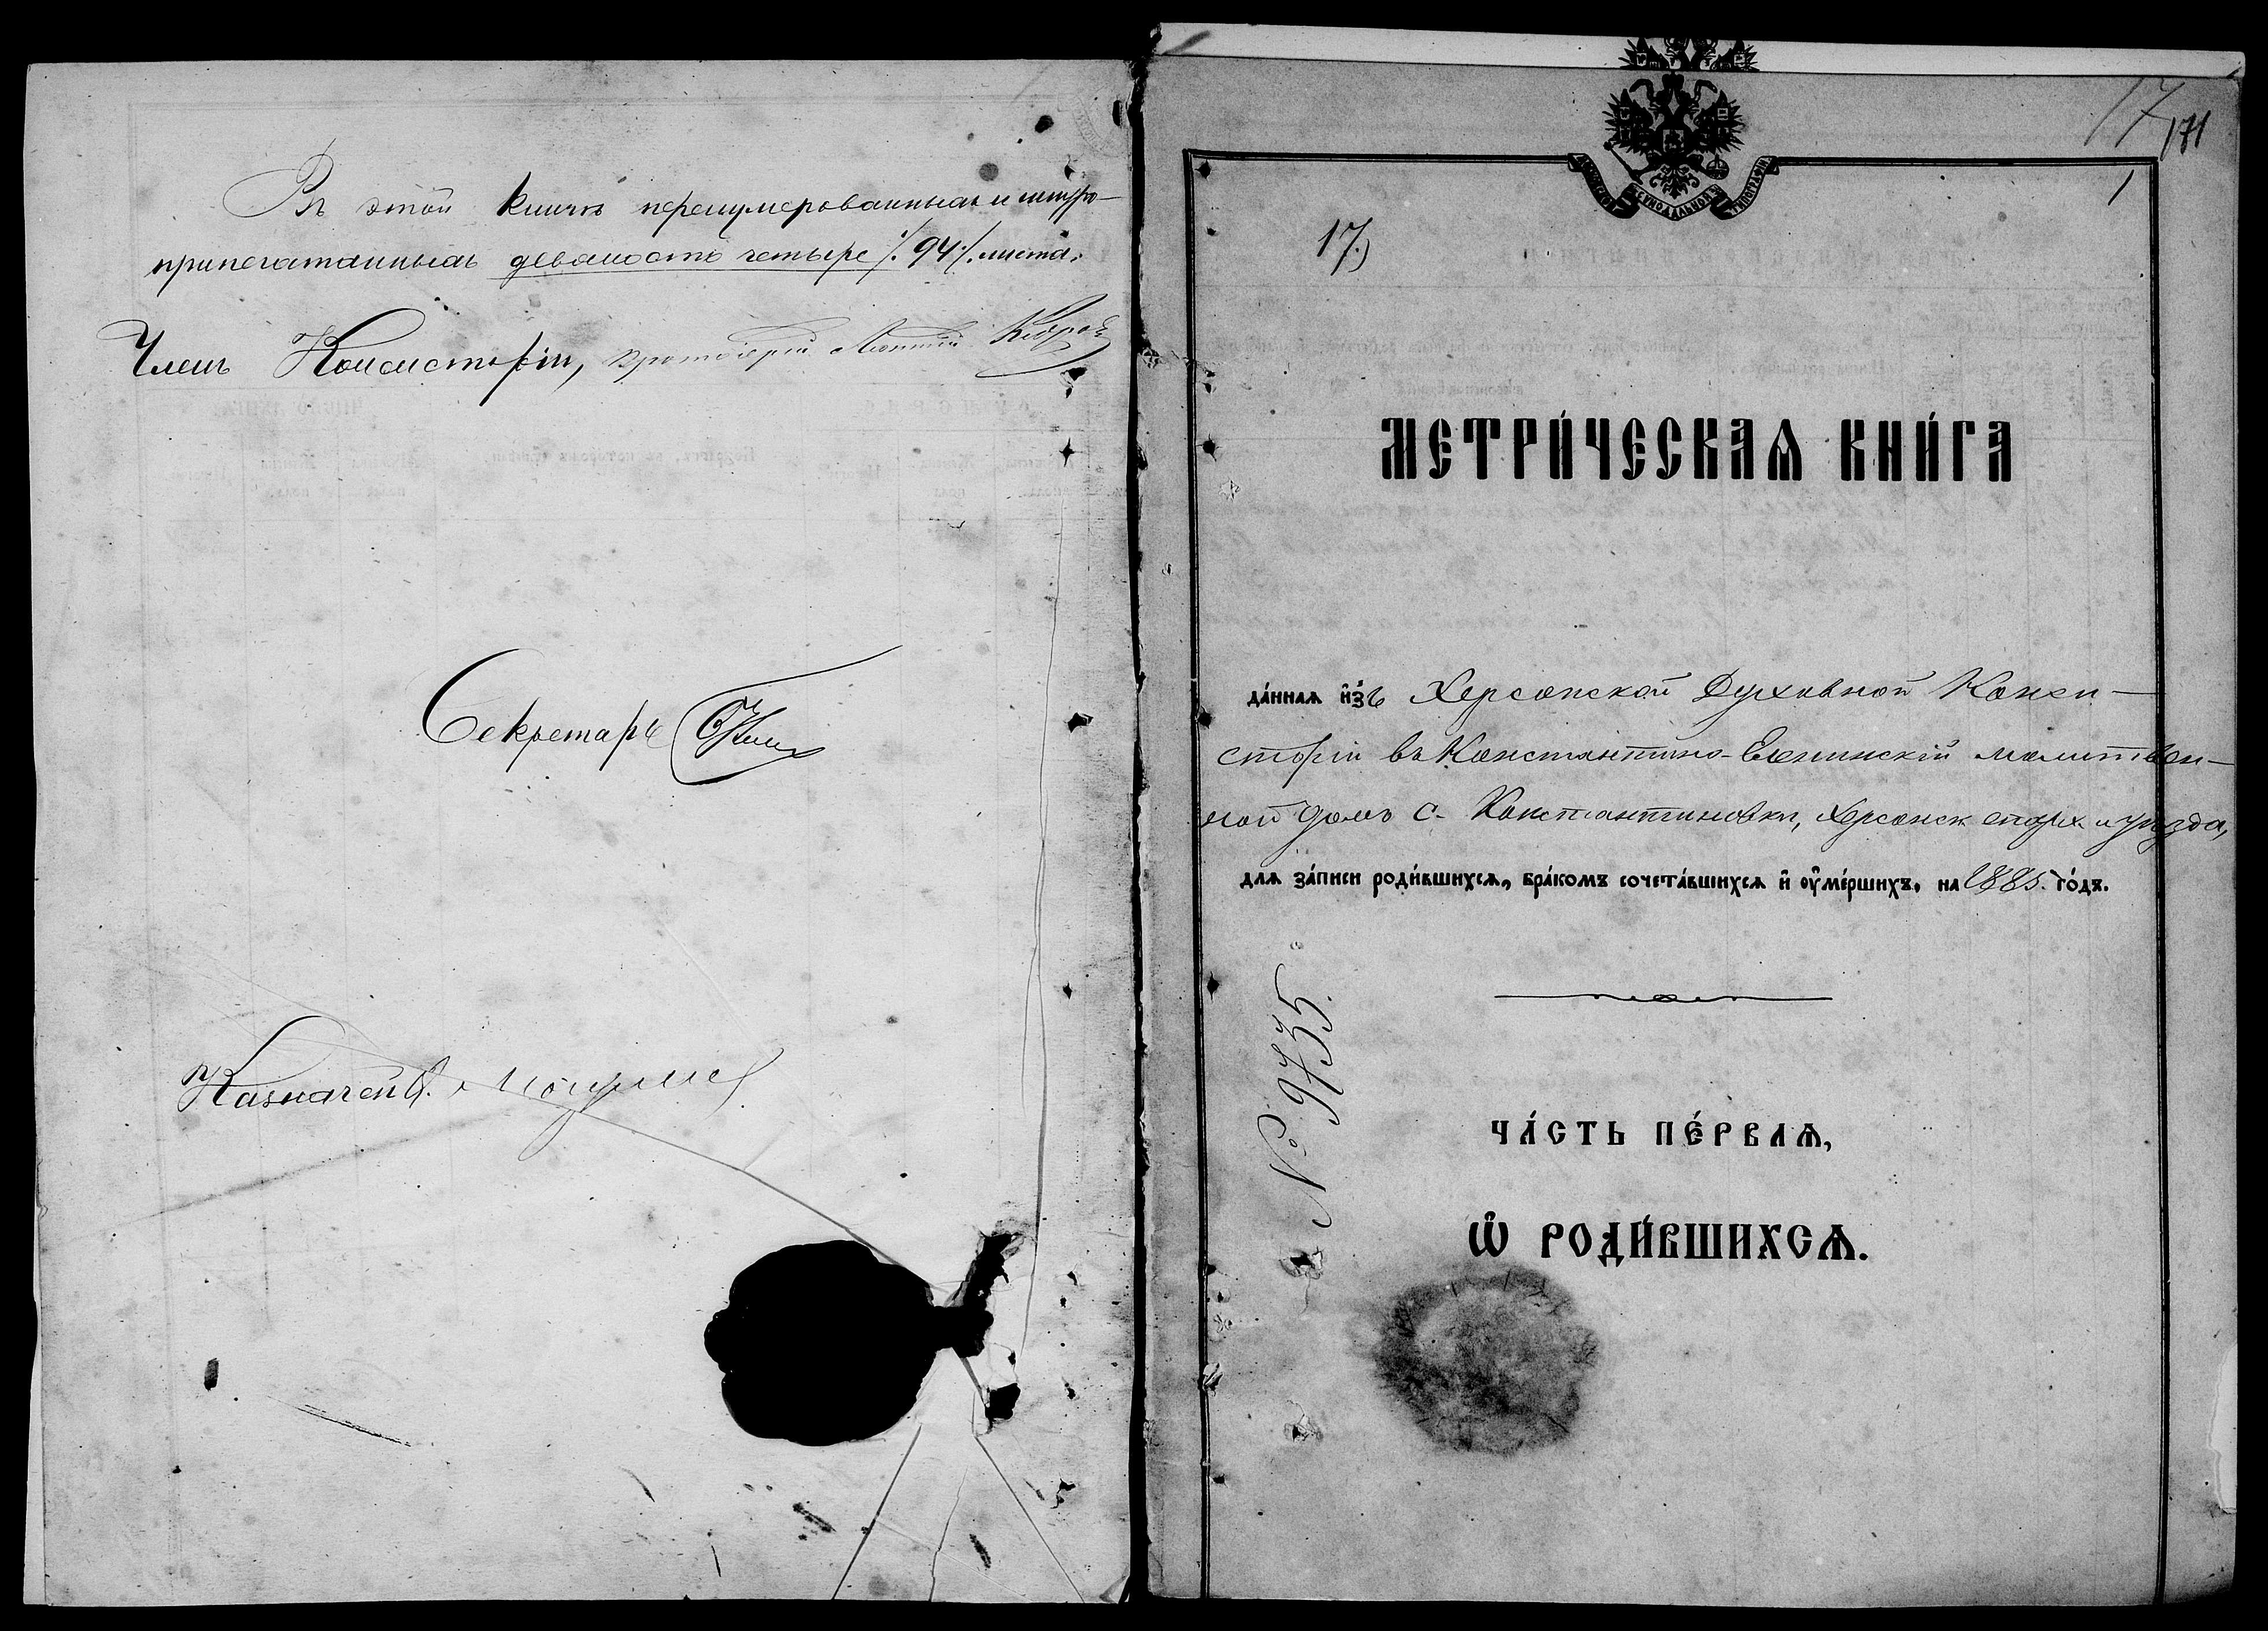 Въ этой книгѣ перенумерованныхъ и шнуро-
припечатанныхъ девяносто четыре /. 94 /. листа.
Членъ Консисторіи, Протоіерей
Секретарь
Казначей
17
171
1
МОСКОВСКОЙ СѴНОДАЛЬНОЙ ТИПОГРАФІИ
17.)
МЕТРИ́ЧЕСКАѦ КНИ́ГА
да́ннаѧ и҆зъ Херсонской Духовной Конси-
сторіи въ Константино-Еленинскій молитвен-
ной домъ с. Константиновки, Херсонск. епарх. и уѣзда,
длѧ за́писи роди́вшихсѧ, бра́комъ сочета́вшихсѧ и҆ ѹ҆ме́ршихъ, на 1885. го́дъ.
№ 9735.
ЧА́СТЬ ПЕ́РВАѦ,
Ѡ҆ РОДИ́ВШИХСѦ.